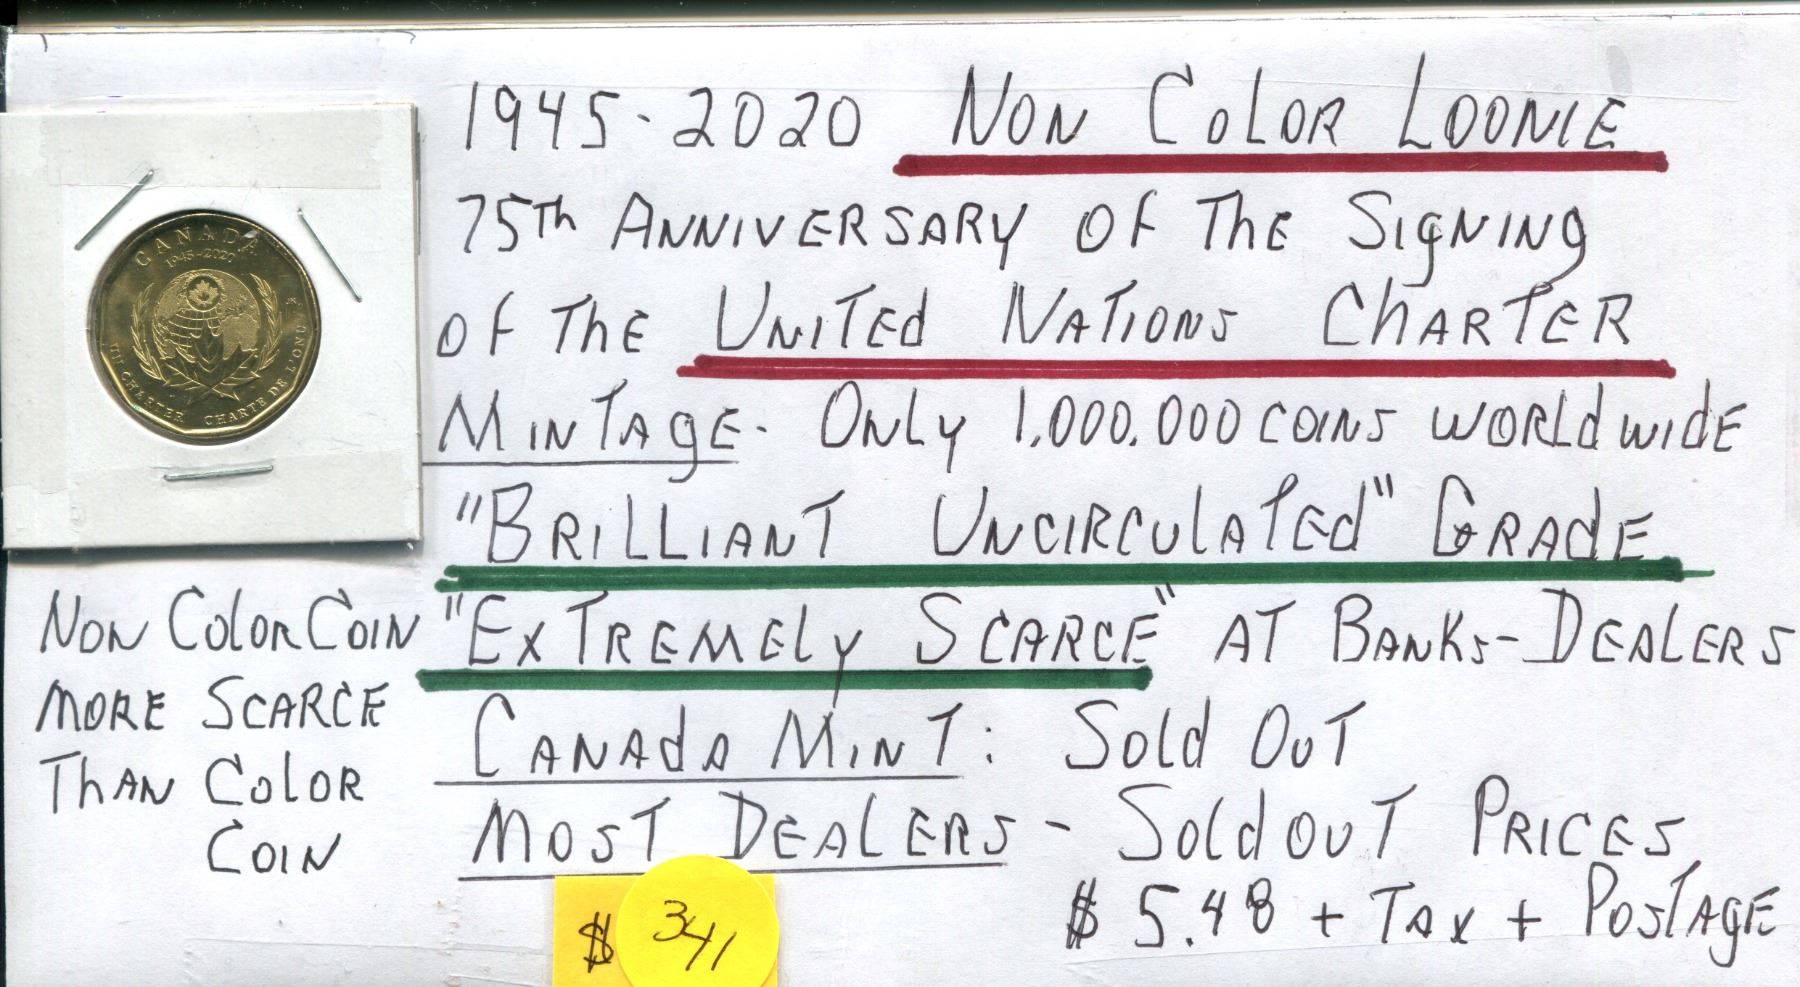 CANADA
1945-2020
UN CHARTER CHARTE DE L'ONU
1945-2020 NON COLOR LOONIE
75Th ANNIVERSARY OF THE SIGNING
OF THE UNITED NATIONS CHARTER
MINTAGE- ONLY 1,000,000 COINS WORLDWIDE
"BRILLIANT UNCIRCULATED" GRADE
"EXTREMELY SCARCE" AT BANKS-DEALERS
CANADA MINT: SOLD OUT
MOST DEALERS - SOLD OUT PRICES
$ 5.48 + TAX + POSTAGE
NON COLOR COIN
MORE SCARCE
THAN COLOR
COIN
$ 341